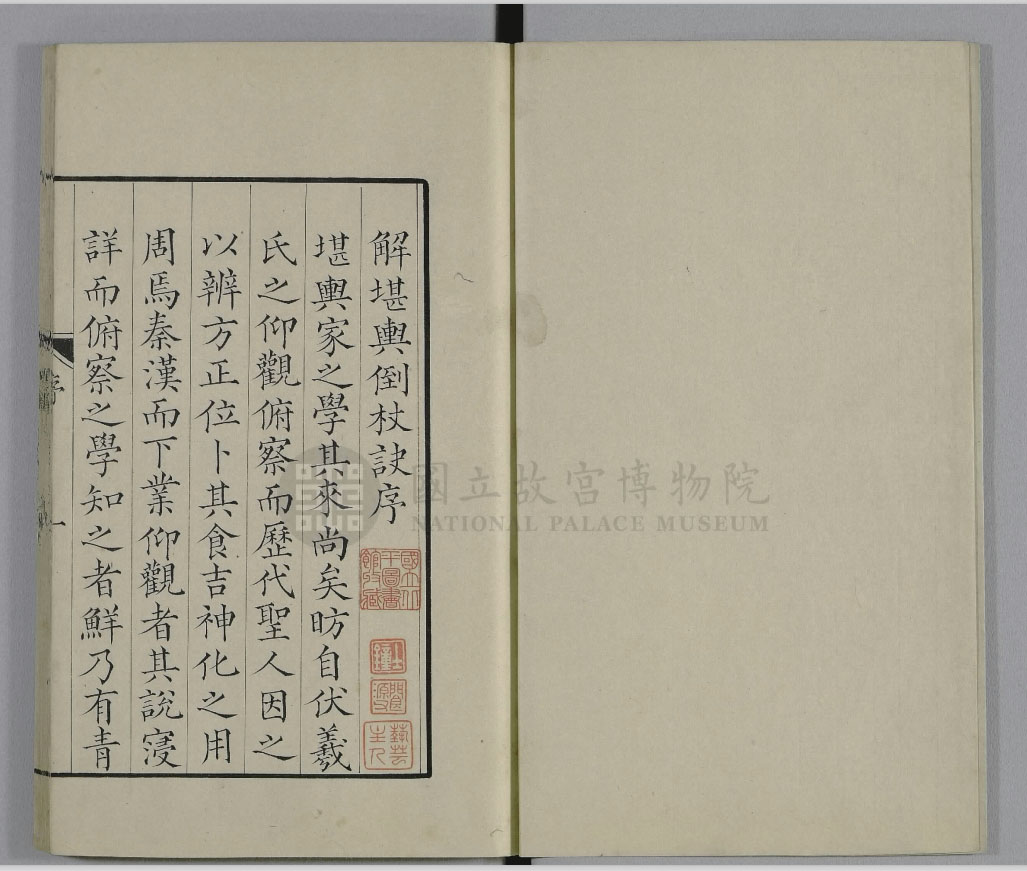 解堪輿倒杖訣序
堪輿家之學其來尚矣昉自伏羲
氏之仰觀俯察而歷代聖人因之
以辨方正位卜其食吉神化之用
周焉秦漢而下業仰觀者其說寖
詳而俯察之學知之者鮮乃有青
國立北
平圖書
館收藏
汪士
鐘
閬
源父
藝芸
主人
序
一
國立故宮博物院
NATIONAL PALACE MUSEUM